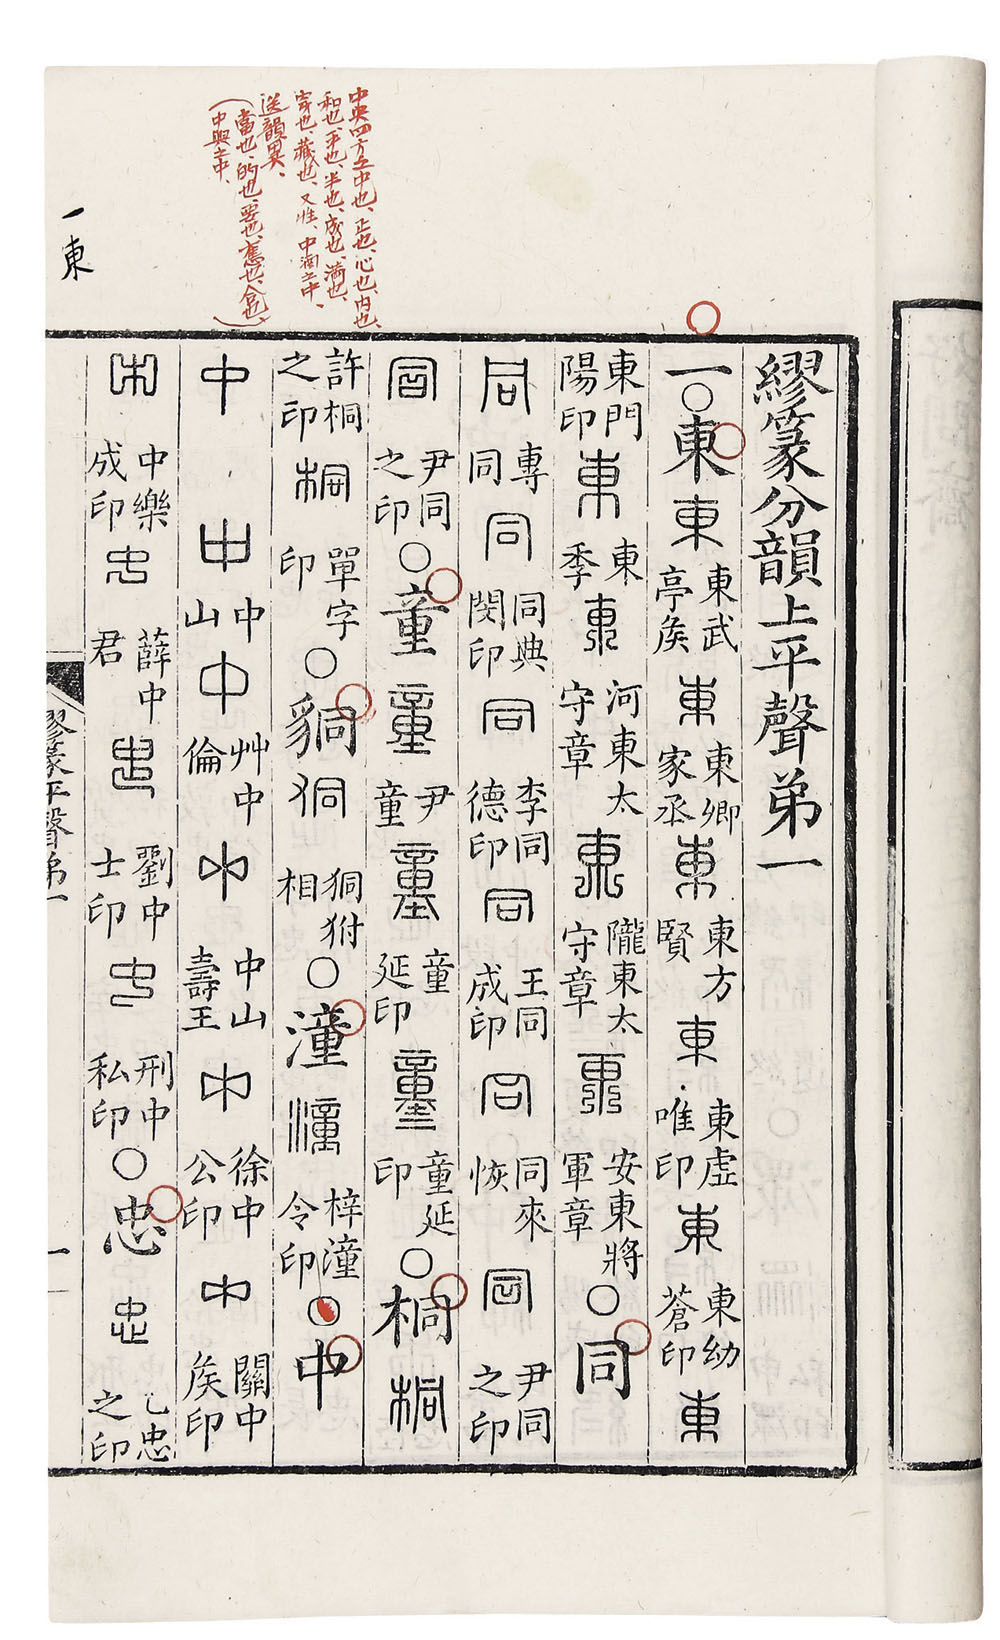 繆篆分韻上平聲弟一
一〇東東東武亭矦東東卿家丞東東方賢東東虛唯印東東幼蒼印東
東門陽印東東季東河東太守章東隴東太守章東安東將軍章〇同
同專同同同典閔印同李同德印同王同成印同同來恢同尹同之印
同尹同之印〇童童尹童童童延印童童延印〇桐桐
許桐之印桐單字印〇狪狪狪狪犲相〇潼潼梓潼令印〇中
中中中山中艸中倫中中山壽王中徐中公印中關中矦印
中中樂成印中薛中君中劉中士印中刑中私印〇忠忠乙忠之印
繆篆平聲弟一
一
中央四方之中也、正也、心也、内也、
和也、平也、半也、成也、滿也、
穿也、藏也、又姓、中湳之中、
送韻異、
(當也、的也、要也、舊也、合也、
(中興之中、
一東